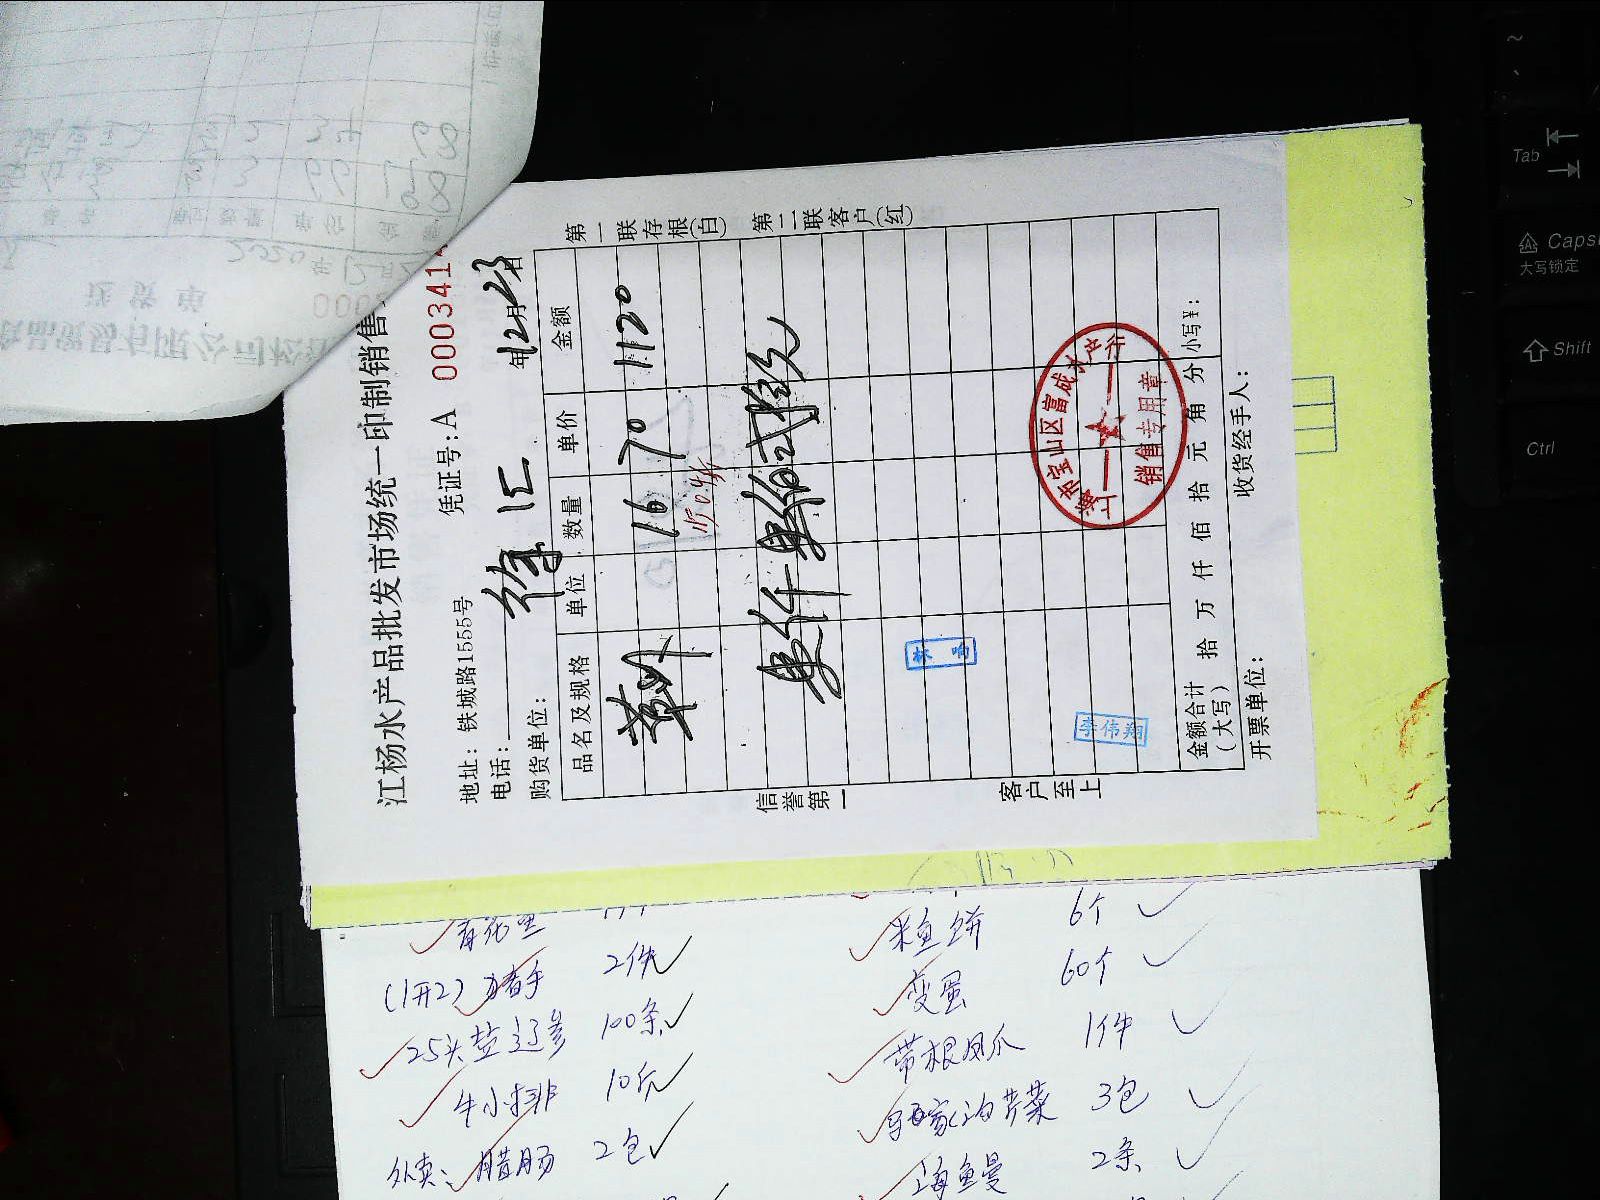 江杨水产品批发市场统一印制销售
地址：铁城路1555号 凭证号：A 0003414
电话：
购货单位： 徐汇 年12月23日
品名及规格 单位 数量 单价 金额
16 70 1120
15.04斤
壹仟壹佰弍拾元
林鸣
李伟翔
上海市宝山区富成水产行
销售专用章
金额合计（大写） 拾 万 仟 佰 拾 元 角 分 小写¥：
开票单位： 收货经手人：
第一联存根（白） 第二联客户（红）
信誉第一 客户至上
送货单
2020年12月
米鱼饼 6个
(1开2) 猪手 2件
变蛋 60个
25头盐辽参 100条
带根凤爪 1件
牛小排 10斤
马家沟芹菜 3包
外卖：腊肠 2包
海鱼曼 2条
~
Tab
Caps
大写锁定
Shift
Ctrl